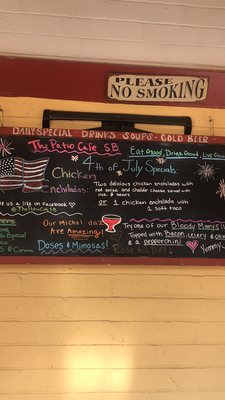 PLEASE
NO SMOKING
DAILY SPECIAL DRINKS SOUPS - COLD BEER
The Patio Cafe S.B
Eat Good, Drink Good, Live Good
4th of July Specials
Chicken
Enchiladas:
Two delicious chicken enchiladas with
red sauce and chedder cheese served with
rice & beans
OR 1 chicken enchilada with
1 soft taco
us a like on Facebook
@ThePatioCafeSB
Our Micheladas
Are Amazing!
Doses & Mimosas!
ROSE ALL DAY
Try one of our Bloody Marys!!
Topped with Bacon, celery & olives
& a pepperchini
Yummy
Especial
& Corona